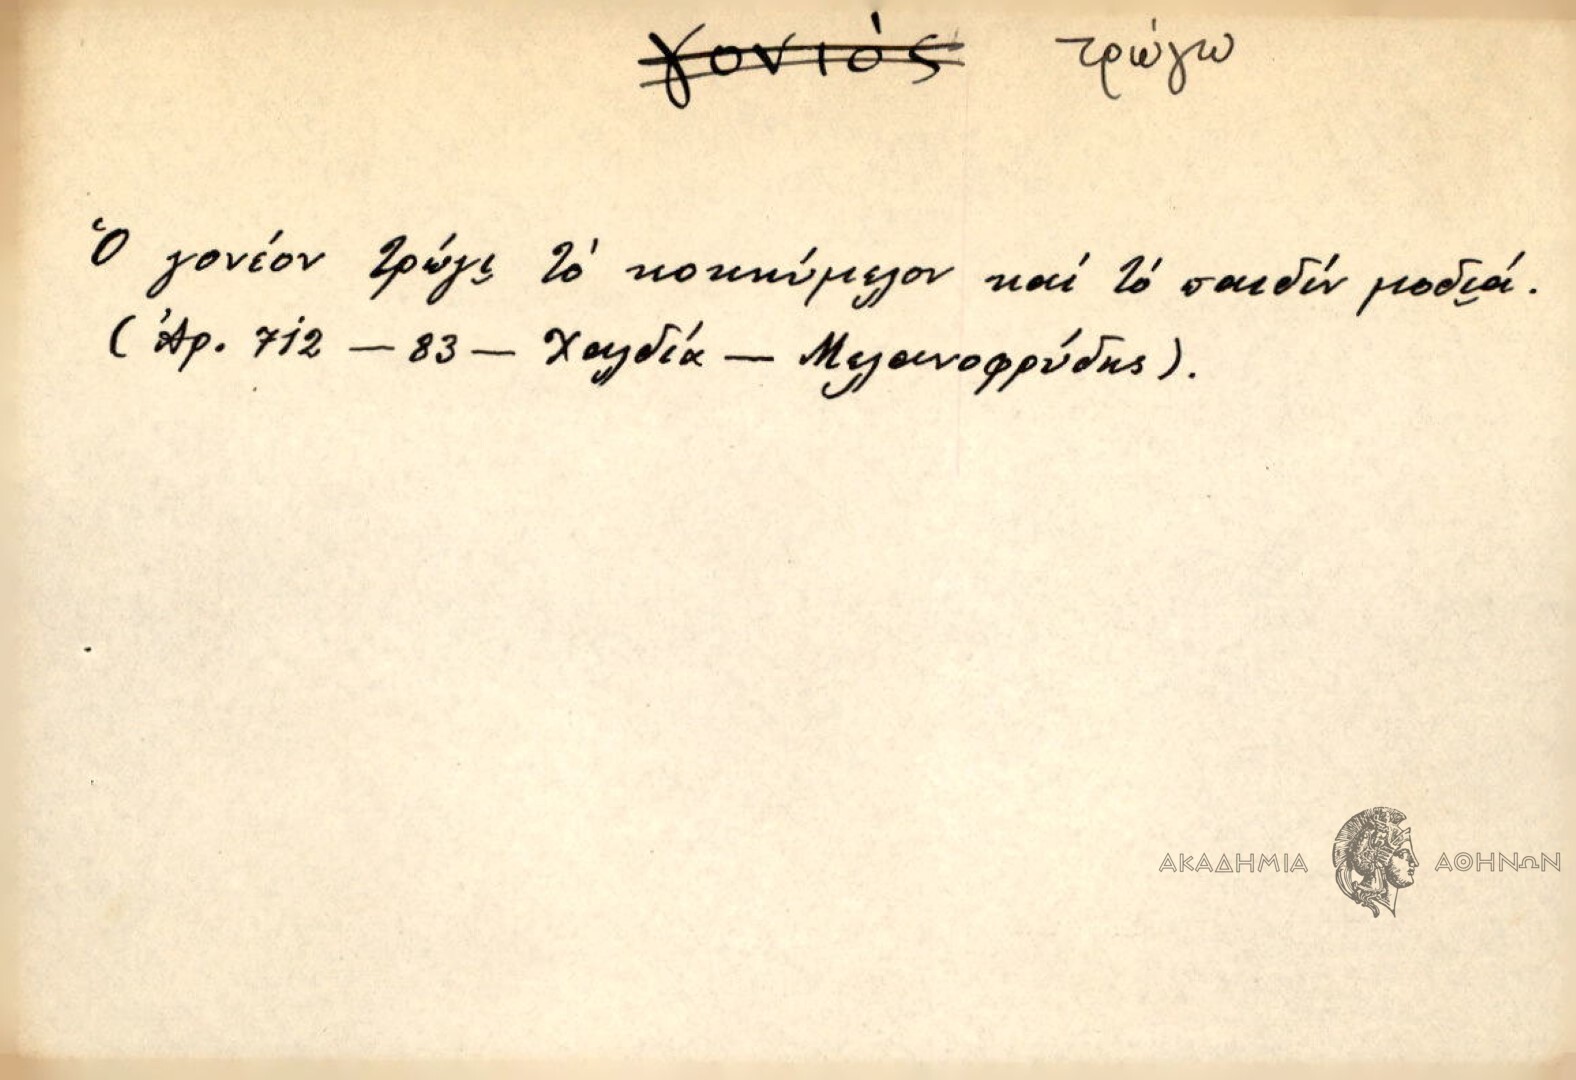 γονιός τρώγω
Ὁ γονέον τρώγε τὸ κοκκύμελον καί τό παιδίν μοδεά.
(Ἀρ. 712 – 83 – Χαλδία – Μελανοφρύδης).
ΑΚΑΔΗΜΙΑ ΑΘΗΝΩΝ